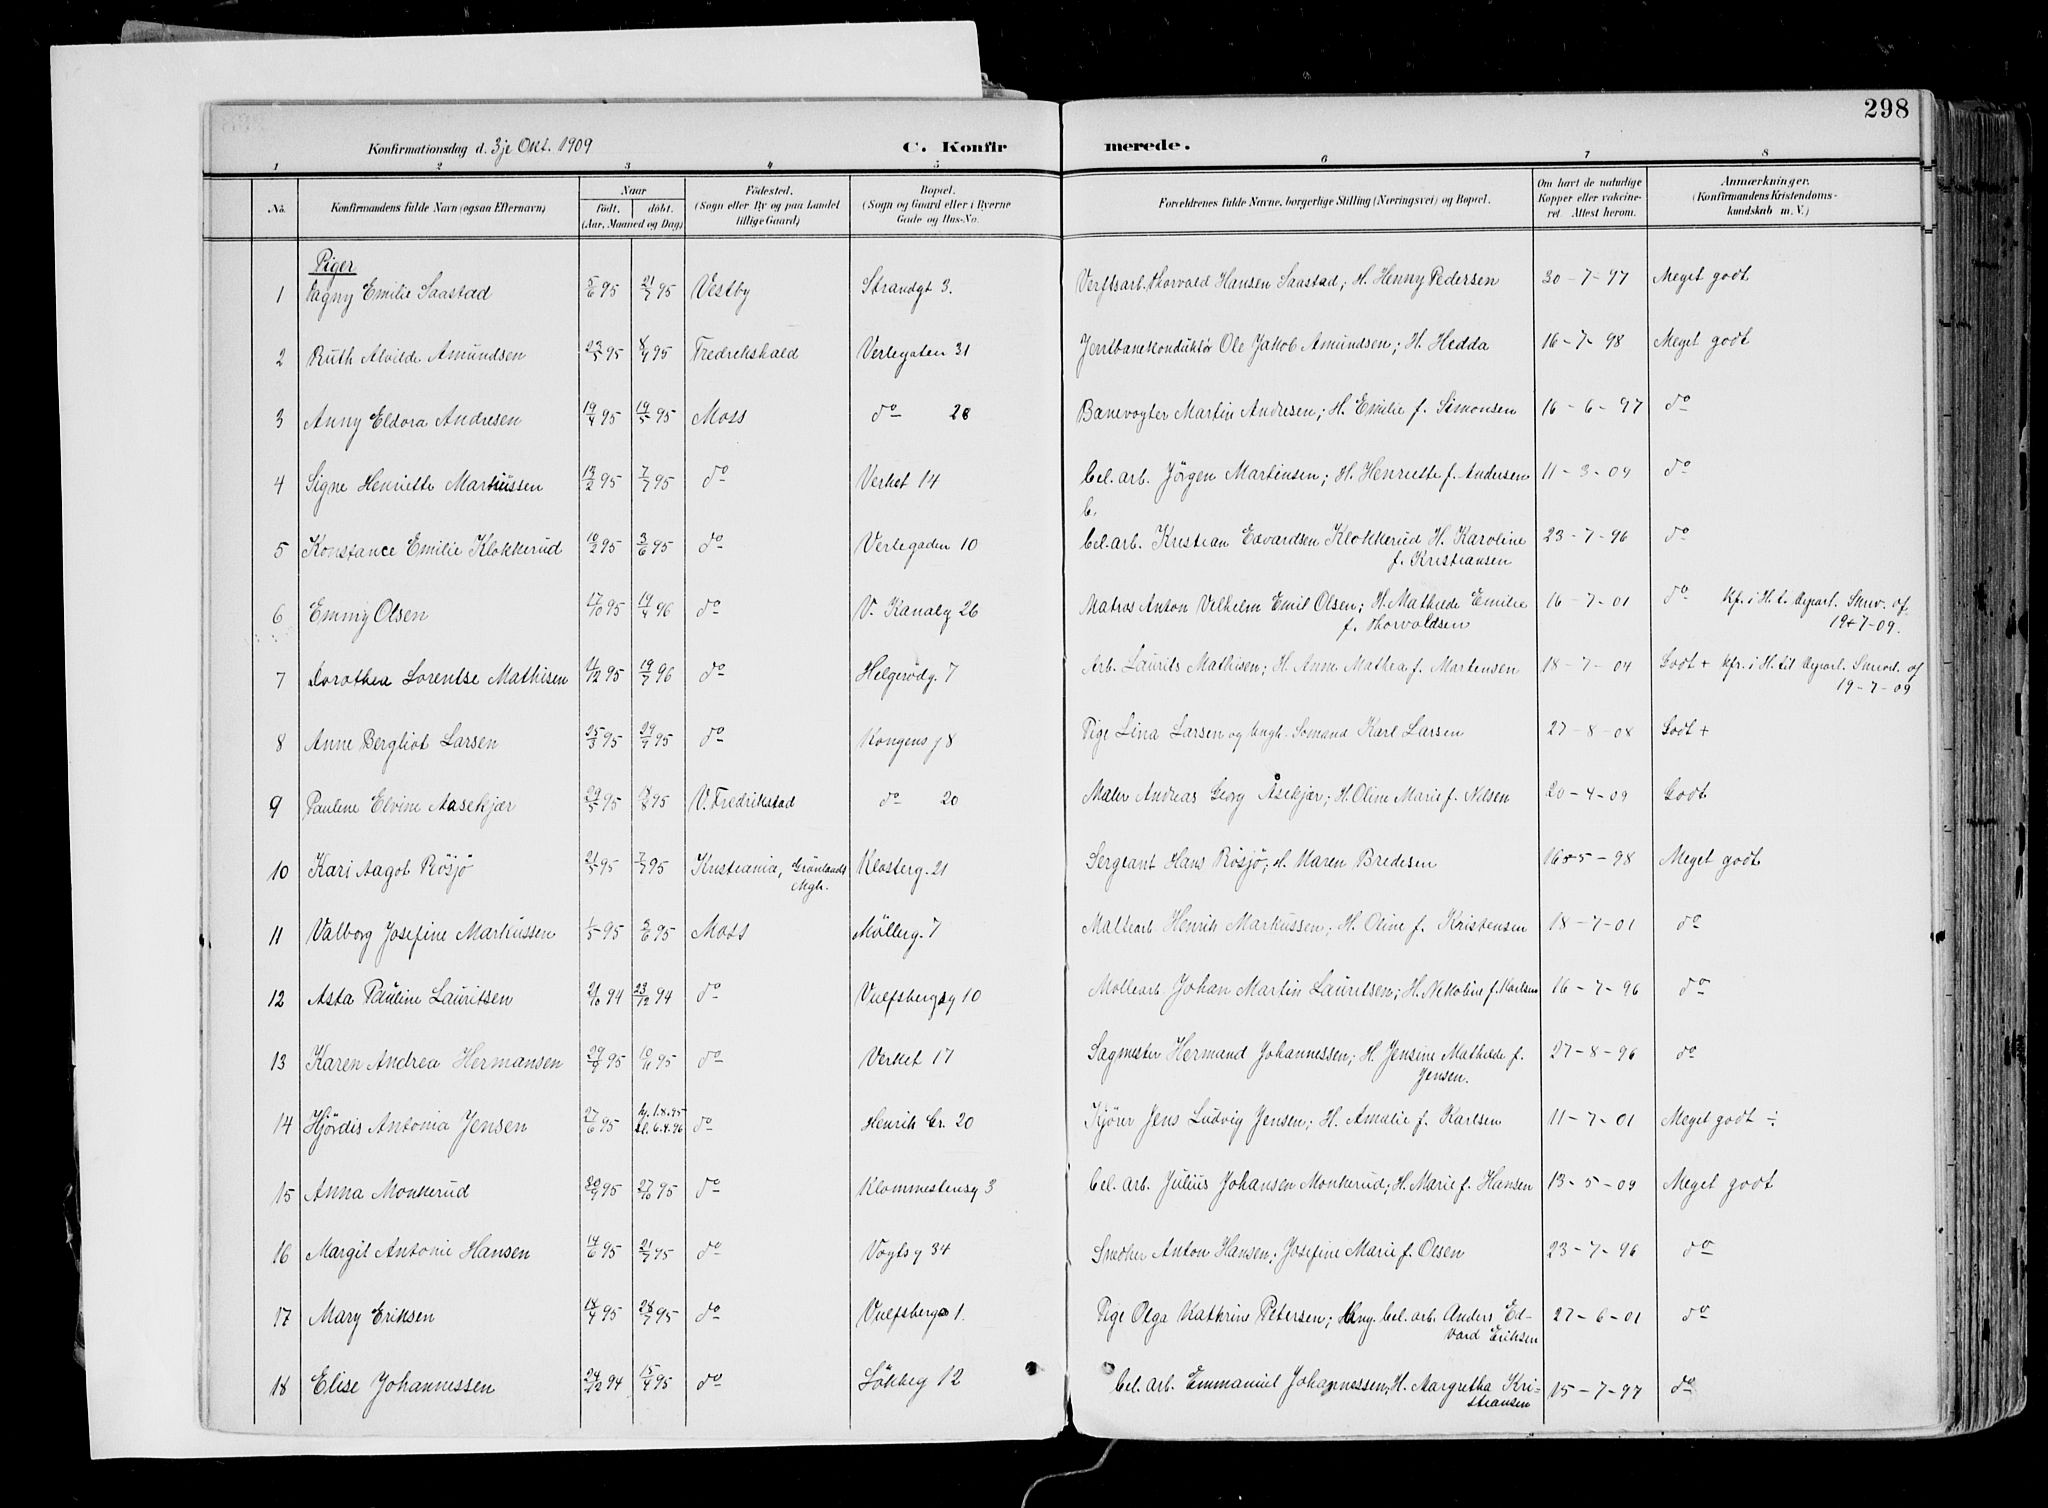 298
Konfirmationsdag d. 3je Okt. 1909
C. Konfirmerede.
1 2 3 4 5 6 7 8
No.
Konfirmandens fulde Navn (ogsaa Efternavn)
Naar
födt. döbt.
(Aar, Maaned og Dag)
Födested.
(Sogn eller By og paa Landet
tillige Gaard)
Bopæl.
(Sogn og Gaard eller i Byerne
Gade og Hus-No.
Forældrenes fulde Navne, borgerlige Stilling (Næringsvei) og Bopæl.
Om havt de naturlige
Kopper eller vakcine-
ret. Attest herom.
Anmærkninger.
(Konfirmandens Kristendoms-
kundskab m. V.)
Piger
1 Dagny Emilie Saastad 5/6 95 21/7 95 Vestby Strandgt 3. Verftsarb. Thorvald Hansen Saastad; H. Henny Pedersen 30-7-97 Meget godt
2 Ruth Alvilde Amundsen 23/5 95 95 Fredrikshald Verlegaten 31 Jernbanekonduktör Ole Jakob Amundsen; H. Hedda 16-7-98 Meget godt
3 Anny Eldora Andresen 19/4 95 19/5 95 Moss do 28 Banevogter Martin Andresen; H. Emilie f. Simonsen 16-6-97 do
4 Signe Henriette 13/2 95 7/7 95 do Verket 14 Cel. arb. Jörgen Martinsen; H. Henriette f. Andersen 11-3-09 do
5 Konstance Emilie Klokkerud 10/2 95 3/6 95 do Verlegaden 10 Cel. arb. Kristian Edvardsen Klokkerud H. Karoline
f. Kristiansen 23-7-96 do
6 Emmy Olsen 17/10 95 19/4 96 do V. Kanalg 26 Matros Anton Vilhelm Emil Olsen; H. Mathilde Emilie
f. Thorvaldsen 16-7-01 do Kfr. i H. t. depart. Skriv. af
19-7-09.
7 Dorothea Lorentse Mathisen 95 19/7 96 do Helgerödg. 7 Arb. Laurits Mathisen; H. Anne Mathea f. Martensen 18-7-04 Godt + Kfr. i H. til depart. Skriv. af
19-7-09
8 Anne Bergliot Larsen 25/3 95 95 do Kongensg 8 Pige Lina Larsen og Ungk. Sömand Karl Larsen 27-8-08 Godt +
9 Pauline Elvine Aasekjær 29/5 95 95 V. Fredrikstad do 20 Maler Andreas Georg Åsekjær; H. Oline Marie f. Nilsen 20-4-09 Godt
10 Kari Aagot Rösjö 21/5 95 7/7 95 Kristiania, Grönlands
Mgh. Klosterg. 21 Sergeant Hans Rösjö; H. Maren Bredesen 16-5-98 Meget godt
11 Valborg Josefine Markussen 1/5 95 95 Moss Möllerg. 7 Maltearb. Henrik Markussen; H. Oline f. Kristensen 18-7-01 do
12 Asta Pauline Lauritsen 21/10 94 23/12 94 do Vulfsbergsg 10 Möllearb. Johan Martin Lauritsen; H. Nikoline f. Karlsen 16-7-96 do
13 Karen Andrea Hermansen 29/9 95 10/11 95 do Verket 17 Sagmester Hermand Johannessen; H. Jensine Mathilde f.
Jensen. 27-8-96 do
14 Hjördis Antonia Jensen 27/6 95 hj. 1.8.95
til. 6.4.96 do Henrik Gr. 20 Kjörer Jens Ludvig Jensen; H. Amalie f. Karlsen 11-7-01 Meget godt ÷
15 Anna Monkerud 95 27/10 95 do Klommestensg 3 Cel. arb. Julius Johansen Monkerud; H. Marie f. Hansen 13-5-09 Meget godt
16 Margit Antonie Hansen 14/6 95 21/7 95 do Vogtsg 34 Snedker Anton Hansen; Josefine Marie f. Olsen 23-7-96 do
17 Mary Eriksen 14/4 95 28/7 95 do Vulfsbergs 1. Pige Olga Kathrine Petersen; Ung. cel. arb. Anders Ed-
vard Eriksen 27-6-01 do
18 Elise Johannessen 24/12 94 15/4 95 do Lökkeg 12 Cel. arb. Emmanuel Johannessen; H. Margretha Kri-
stiansen 15-7-97 do